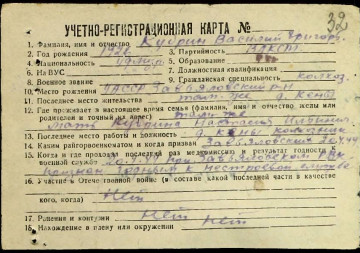 32
УЧЕТНО-РЕГИСТРАЦИОННАЯ КАРТА №
1. Фамилия, имя и отчество Кудрин Василий Григор.
2. Год рождения 1926 3. Партийность ВЛКСМ
4. Национальность 5. Образование
6. На ВУС 7. Должностная квалификация
8. Военное звание 9. Гражданская специальность колхоз.
10. Место рождения УАССР Завьяловский р-н
11. Последнее место жительства там же д. Кены
12. Где проживает в настоящее время семья (фамилия, имя и отчество жены или
родителей и точный их адрес) там же
Мать Кудрина
13. Последнее место работы и должность д. Кены колхозник
14. Каким райгорвоенкоматом и когда призван Завьяловским
15. Когда и где проходил последний раз медкомиссию и результат годности к
военной службе при Завьяловском РВК
признан годным к нестроевой службе
16. Участие в Отечественной войне (в составе какой последней части в качестве
кого, когда) Нет
17. Ранения и контузии Нет
18. Нахождение в плену или окружении Нет